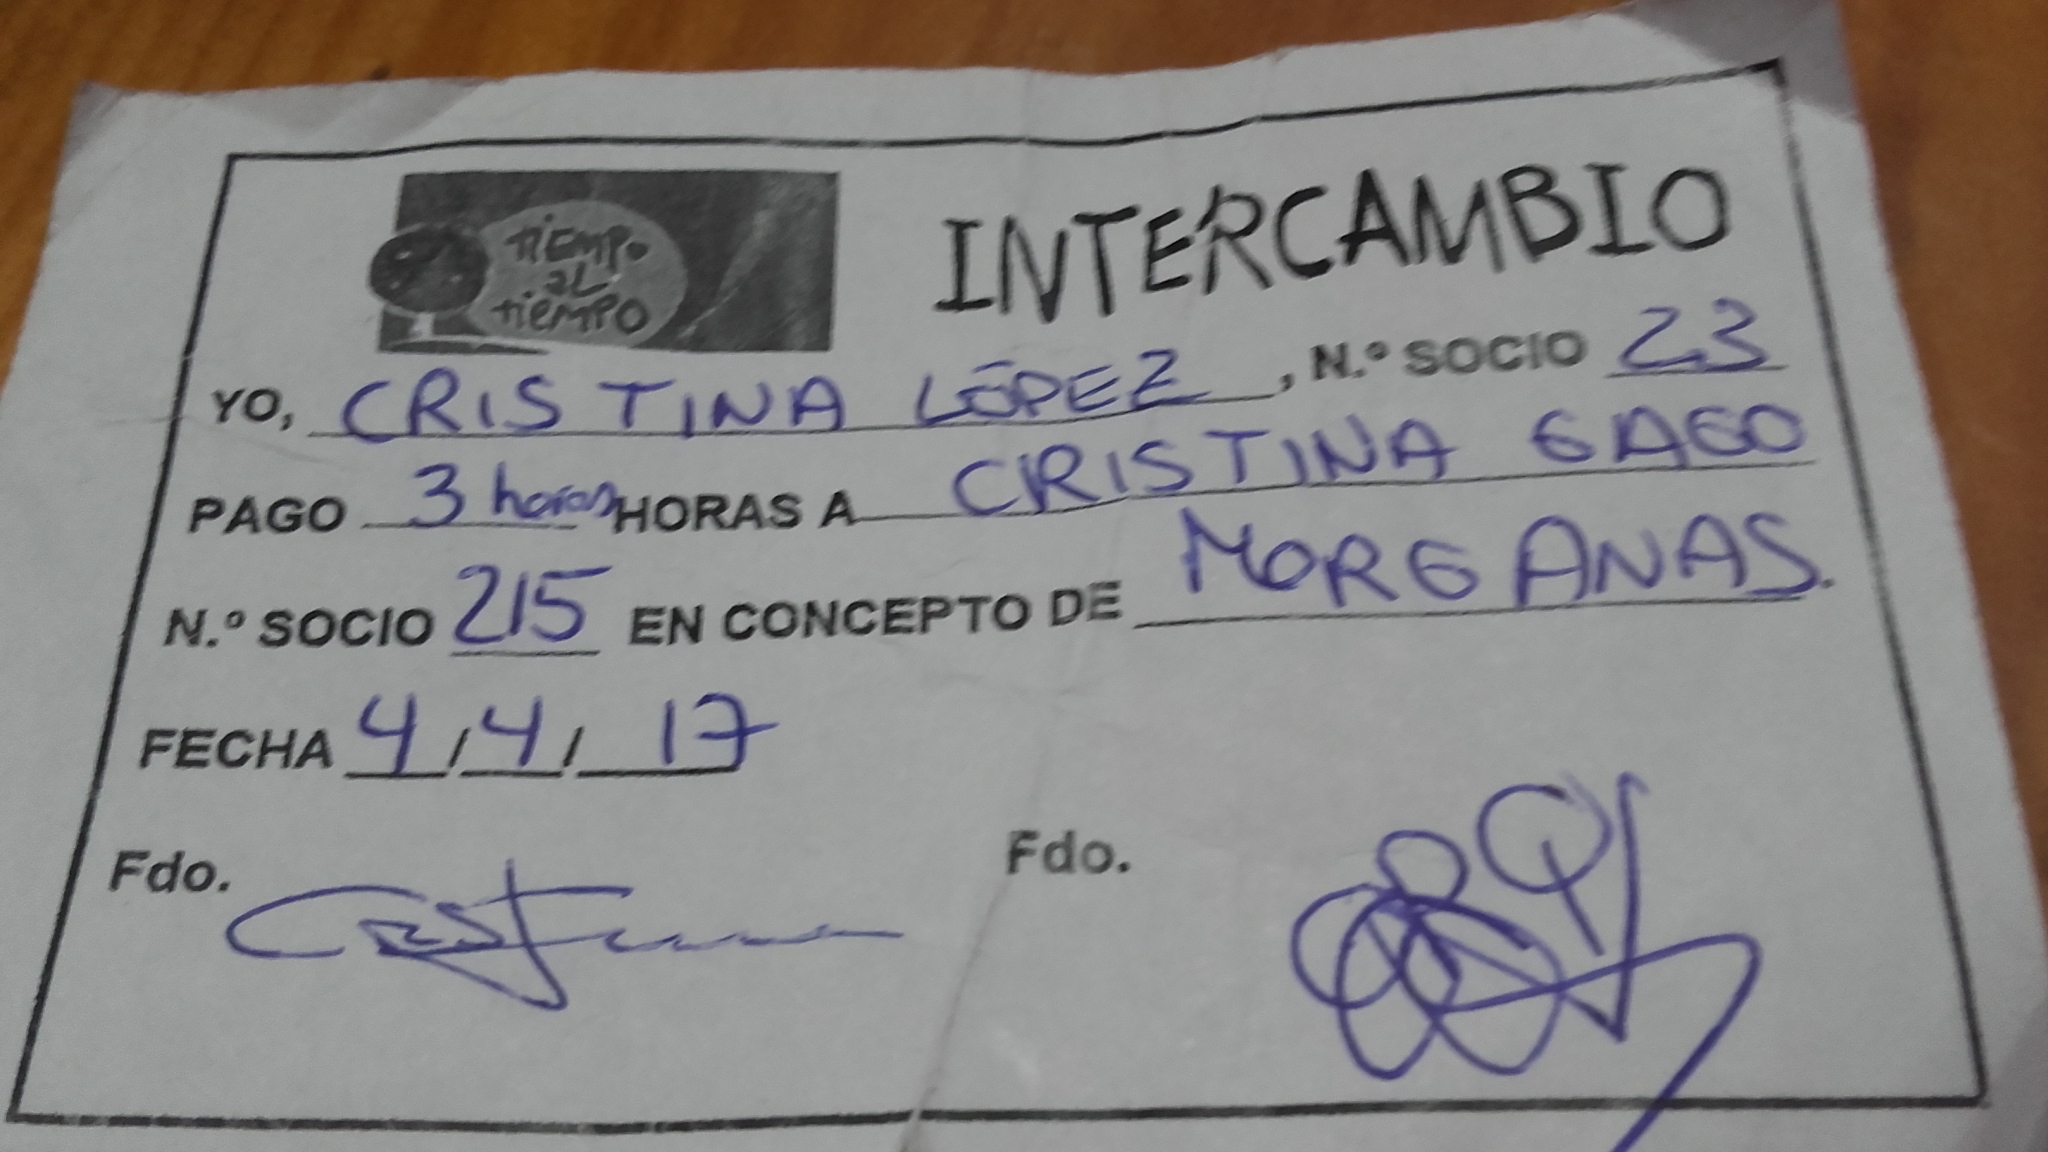 tiempo
al
tiempo
INTERCAMBIO
YO, CRISTINA LÓPEZ, N.º SOCIO 23
PAGO 3 horas HORAS A CRISTINA GAGO
N.º SOCIO 215 EN CONCEPTO DE MORGANAS.
FECHA 4/4/17
Fdo. Fdo.